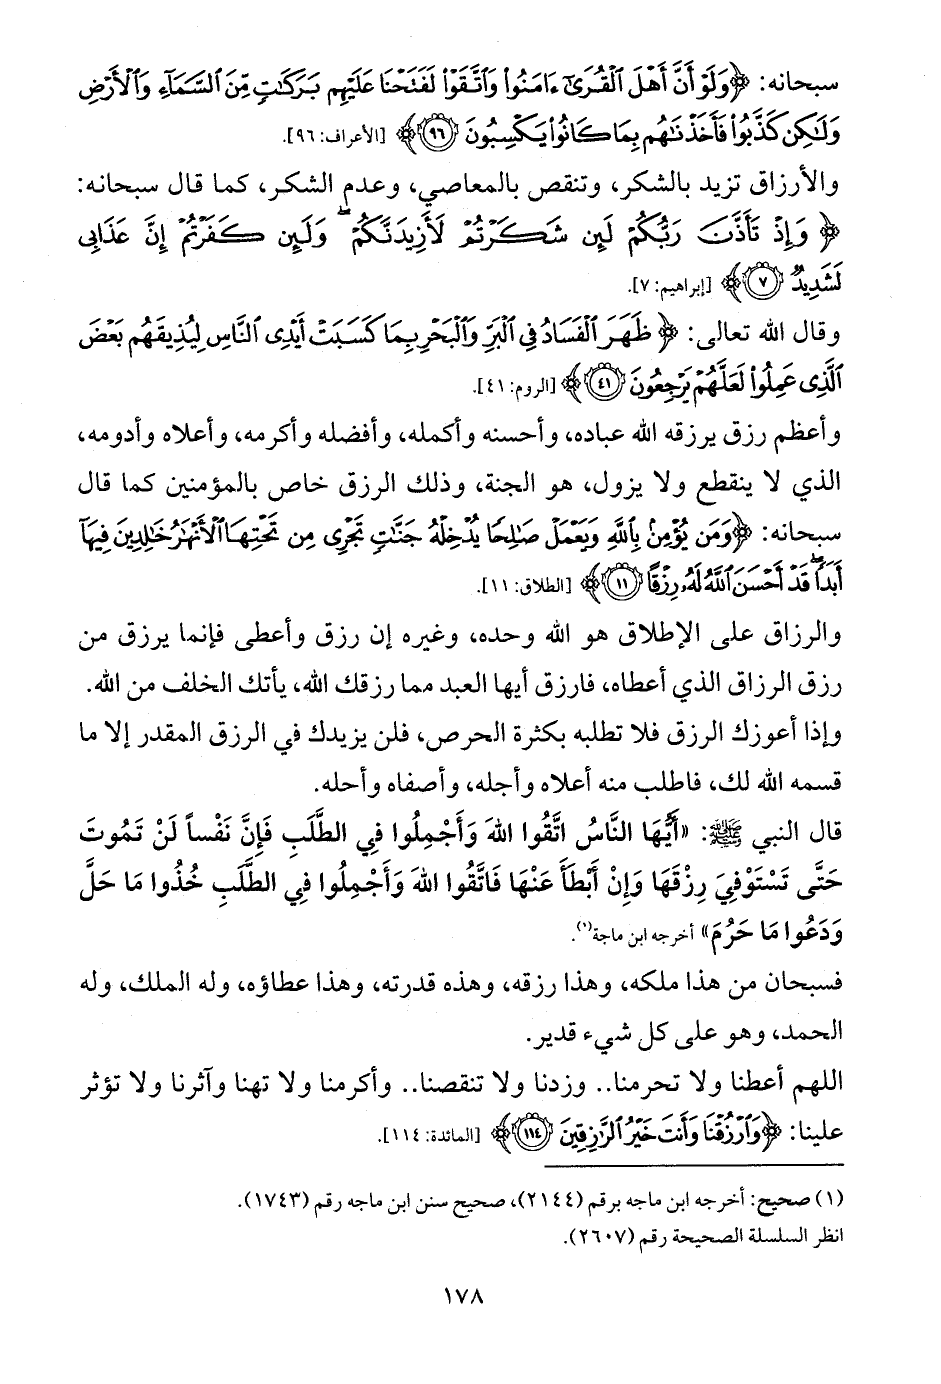 سبحانه: ﴿وَلَوْ أَنَّ أَهْلَ ٱلْقُرَىٰٓ ءَامَنُوا۟ وَٱتَّقَوْا۟ لَفَتَحْنَا عَلَيْهِم بَرَكَٰتٍ مِّنَ ٱلسَّمَآءِ وَٱلْأَرْضِ
وَلَٰكِن كَذَّبُوا۟ فَأَخَذْنَٰهُم بِمَا كَانُوا۟ يَكْسِبُونَ ٩٦﴾ [الأعراف: ٩٦].
والأرزاق تزيد بالشكر، وتنقص بالمعاصي، وعدم الشكر، كما قال سبحانه:
﴿وَإِذْ تَأَذَّنَ رَبُّكُمْ لَئِن شَكَرْتُمْ لَأَزِيدَنَّكُمْ ۖ وَلَئِن كَفَرْتُمْ إِنَّ عَذَابِى
لَشَدِيدٌ ٧﴾ [إبراهيم: ٧].
وقال الله تعالى: ﴿ظَهَرَ ٱلْفَسَادُ فِى ٱلْبَرِّ وَٱلْبَحْرِ بِمَا كَسَبَتْ أَيْدِى ٱلنَّاسِ لِيُذِيقَهُم بَعْضَ
ٱلَّذِى عَمِلُوا۟ لَعَلَّهُمْ يَرْجِعُونَ ٤١﴾ [الروم: ٤١].
وأعظم رزق يرزقه الله عباده، وأحسنه وأكمله، وأفضله وأكرمه، وأعلاه وأدومه،
الذي لا ينقطع ولا يزول، هو الجنة، وذلك الرزق خاص بالمؤمنين كما قال
سبحانه: ﴿وَمَن يُؤْمِنۢ بِٱللَّهِ وَيَعْمَلْ صَٰلِحًا يُدْخِلْهُ جَنَّٰتٍ تَجْرِى مِن تَحْتِهَا ٱلْأَنْهَٰرُ خَٰلِدِينَ فِيهَآ
أَبَدًا ۖ قَدْ أَحْسَنَ ٱللَّهُ لَهُۥ رِزْقًا ١١﴾ [الطلاق: ١١].
والرزاق على الإطلاق هو الله وحده، وغيره إن رزق وأعطى فإنما يرزق من
رزق الرزاق الذي أعطاه، فارزق أيها العبد مما رزقك الله، يأتك الخلف من الله.
وإذا أعوزك الرزق فلا تطلبه بكثرة الحرص، فلن يزيدك في الرزق المقدر إلا ما
قسمه الله لك، فاطلب منه أعلاه وأجله، وأصفاه وأحله.
قال النبي ﷺ: «أَيُّهَا النَّاسُ اتَّقُوا اللهَ وَأَجْمِلُوا فِي الطَّلَبِ فَإِنَّ نَفْساً لَنْ تَمُوتَ
حَتَّى تَسْتَوْفِيَ رِزْقَهَا وَإِنْ أَبْطَأَ عَنْهَا فَاتَّقُوا اللهَ وَأَجْمِلُوا فِي الطَّلَبِ خُذُوا مَا حَلَّ
وَدَعُوا مَا حَرُمَ» أخرجه ابن ماجة(١).
فسبحان من هذا ملكه، وهذا رزقه، وهذه قدرته، وهذا عطاؤه، وله الملك، وله
الحمد، وهو على كل شيء قدير.
اللهم أعطنا ولا تحرمنا.. وزدنا ولا تنقصنا.. وأكرمنا ولا تهنا وآثرنا ولا تؤثر
علينا: ﴿وَٱرْزُقْنَا وَأَنتَ خَيْرُ ٱلرَّٰزِقِينَ ١١٤﴾ [المائدة: ١١٤].
(١) صحيح: أخرجه ابن ماجه برقم (٢١٤٤)، صحيح سنن ابن ماجه رقم (١٧٤٣).
انظر السلسلة الصحيحة رقم (٢٦٠٧).
١٧٨